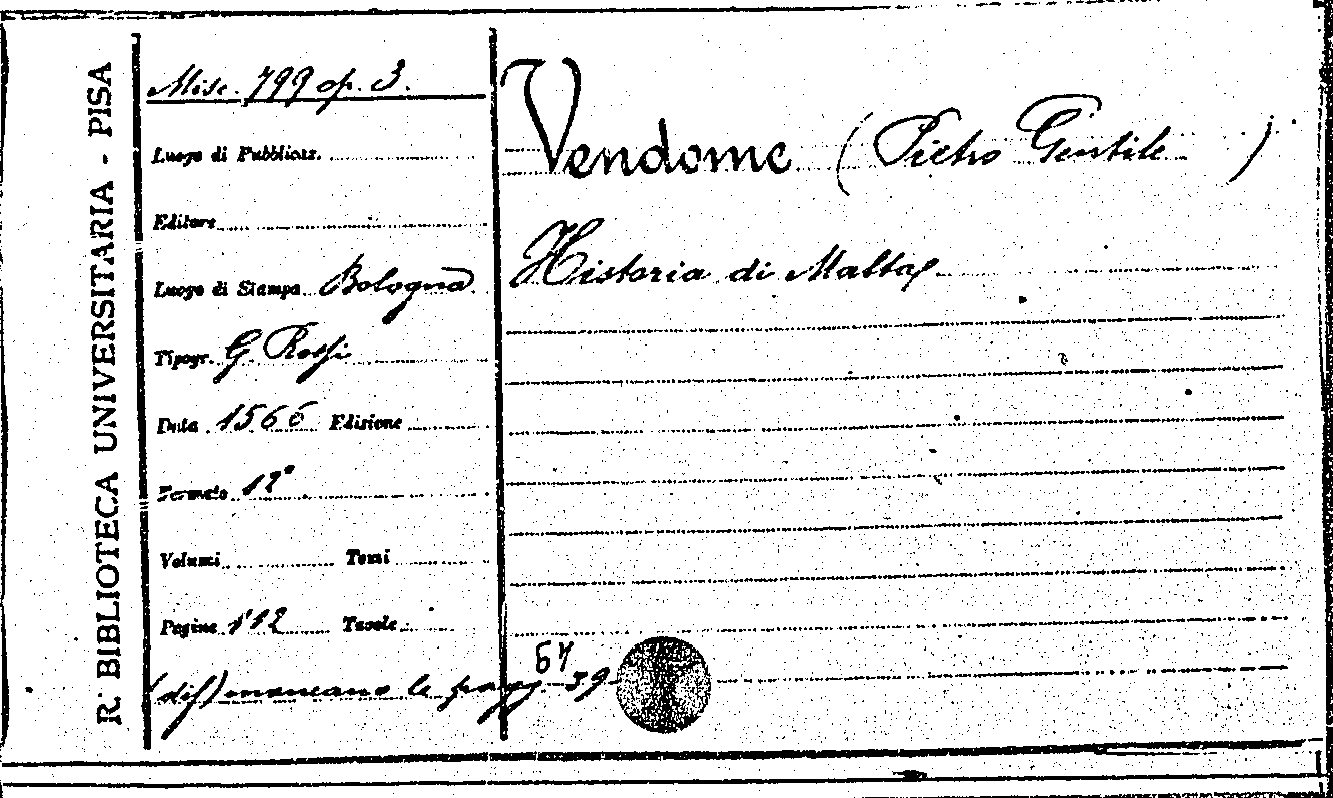 R. BIBLIOTECA UNIVERSITARIA - PISA
Misc. 799 op. 3.
Luogo di Pubblicaz.
Editore
Luogo di Stampa Bologna
Tipogr. G. Rossi
Data 1566 Edizione
Formato 12°
Volumi Tomi
Pagine 112 Tavole
(dif) mancano le pagg. 39
57
Vendome (Pietro Gentile)
Historia di Malta